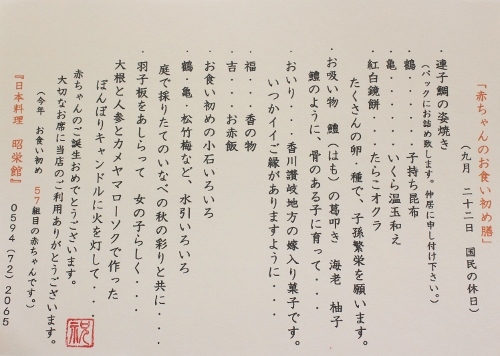 「赤ちゃんのお食い初め膳」
(九月 二十二日 国民の休日)
・連子鯛の姿焼き
(パックにお詰め致します。仲居に申し付け下さい。)
・鶴・・・・・・子持ち昆布
・亀・・・・・・いくら温玉和え
・紅白鏡餅・・・・たらこオクラ
たくさんの卵・種で、子孫繁栄を願います。
・お吸い物 鱧(はも)の葛叩き 海老 柚子
鱧のように、骨のある子に育って・・・・
・おいり・・・・香川讃岐地方の嫁入り菓子です。
いつかイイご縁がありますように・・・・
・福・・・香の物
・吉・・・お赤飯
・お食い初めの小石いろいろ
・鶴・亀・松竹梅など、水引いろいろ
庭で採りたてのいなべの秋の彩りと共に・・・・
・羽子板をあしらって 女の子らしく・・・・
大根と人参とカメヤマローソクで作った
ぼんぼりキャンドルに火を灯して・・
赤ちゃんのご誕生おめでとうございます。
大切なお席に当店のご利用ありがとうございます。
(今年 お食い初め 57組目の赤ちゃんです。)
『日本料理 昭栄館』 0594(72)2065
祝